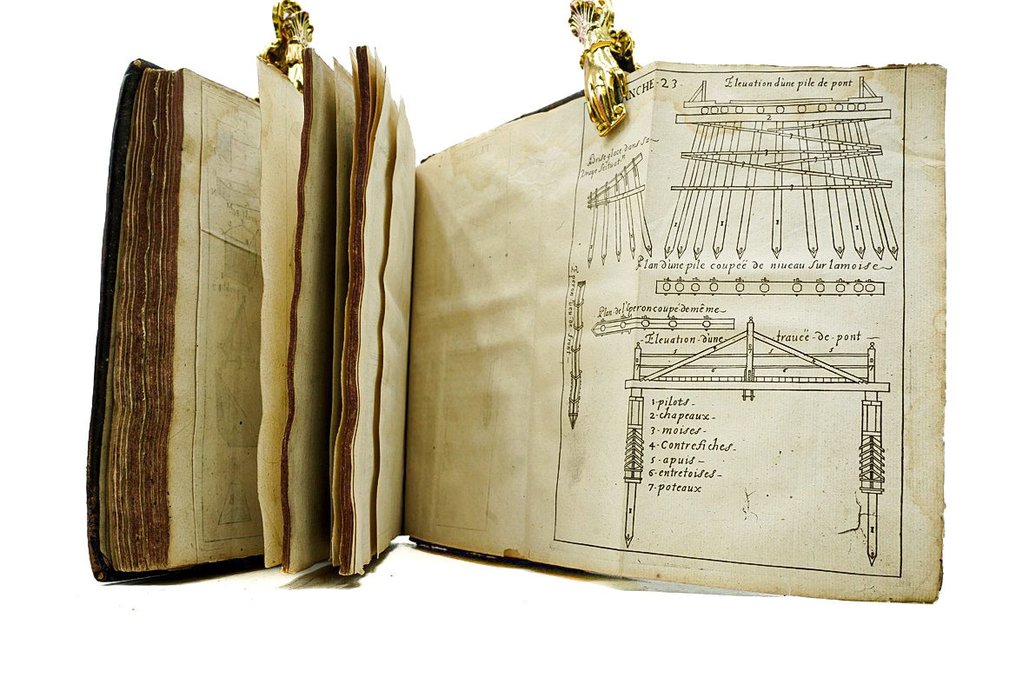 NCHE-23
Eleuation d'une pile de pont
Brise glace dans sa
Plan d'une pile coupëe de niueau sur lamoise
Plan de l'Eperon coupe de même
Eleuation d'une trauëe de pont
1 pilots
2 chapeaux
3 moises
4 Contrefiches
5 apuis
6 entretoises
7 poteaux